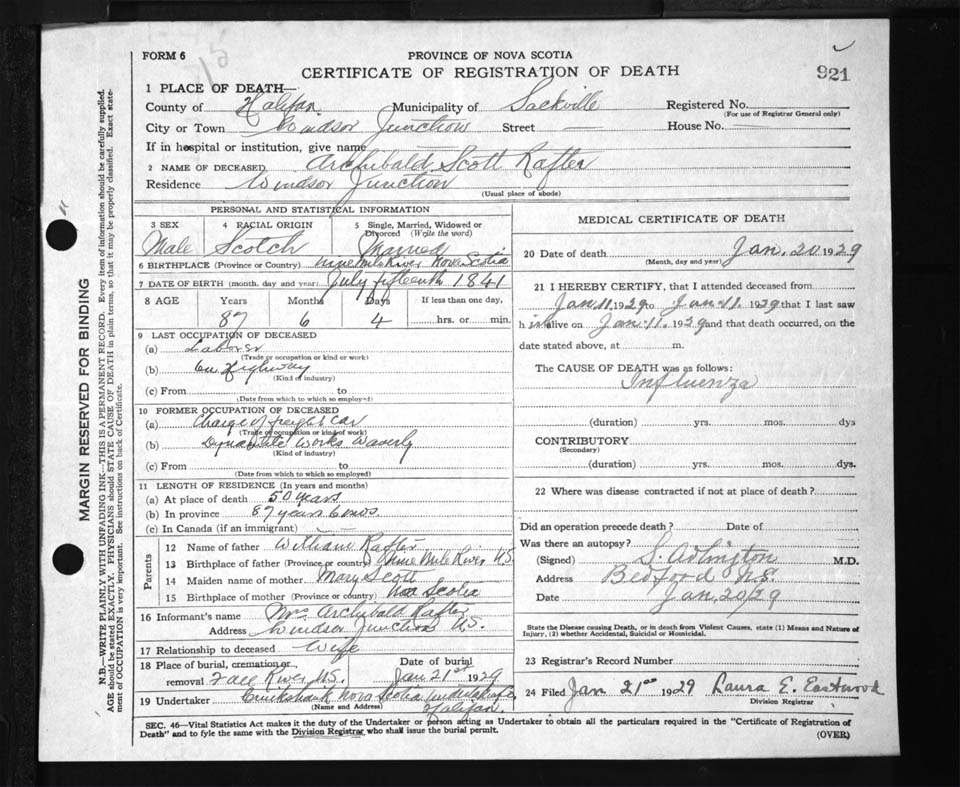 FORM 6
PROVINCE OF NOVA SCOTIA
CERTIFICATE OF REGISTRATION OF DEATH
921
1 PLACE OF DEATH—
County of Halifax Municipality of Sackville Registered No.
(For use of Registrar General only)
City or Town Windsor Junction Street — House No. —
If in hospital or institution, give name
2 NAME OF DECEASED Archibald Scott Rafter
Residence Windsor Junction
(Usual place of abode)
PERSONAL AND STATISTICAL INFORMATION
3 SEX 4 RACIAL ORIGIN 5 Single, Married, Widowed or Divorced (Write the word)
Male Scotch Married
6 BIRTHPLACE (Province or Country) Nine Mile River Nova Scotia
7 DATE OF BIRTH (month. day and year) July fifteenth 1841
8 AGE Years Months Days If less than one day,
87 6 4 hrs. or min.
9 LAST OCCUPATION OF DECEASED
(a) Laborer
(Trade or occupation or kind or work)
(b) on Highway
(Kind of industry)
(c) From to
(Date from which to which so employed)
10 FORMER OCCUPATION OF DECEASED
(a) Charge of freight car
(Trade or occupation or kind of work)
(b) Dynamite Works Waverly
(Kind of industry)
(c) From to
(Date from which to which so employed)
11 LENGTH OF RESIDENCE (In years and months)
(a) At place of death 50 years
(b) In province 87 years 6 mos.
(c) In Canada (if an immigrant) —
Parents
12 Name of father William Rafter
13 Birthplace of father (Province or country) Nine Mile River N.S.
14 Maiden name of mother Mary Scott
15 Birthplace of mother (Province or country) Nova Scotia
16 Informant's name Mrs Archibald Rafter
Address Windsor Junction N.S.
17 Relationship to deceased Wife
18 Place of burial, cremation or removal Fall River N.S. Date of burial Jan 21st 1929
19 Undertaker Cruikshank Nova Scotia Undertaker
(Name and Address) Halifax.
MEDICAL CERTIFICATE OF DEATH
20 Date of death Jan. 20 1929
(Month, day and year)
21 I HEREBY CERTIFY, that I attended deceased from
Jan 11 1929 to Jan 11. 1929 that I last saw
h im alive on Jan. 11. 1929 and that death occurred, on the
date stated above, at m.
The CAUSE OF DEATH was as follows:
Influenza
(duration) yrs. mos. dys
CONTRIBUTORY
(Secondary)
(duration) yrs. mos. dys.
22 Where was disease contracted if not at place of death?
Did an operation precede death? Date of
Was there an autopsy?
(Signed) S. Adlington M.D.
Address Bedford N.S.
Date Jan. 20/29
State the Disease causing Death, or in death from Violent Causes, state (1) Means and Nature of Injury, (2) whether Accidental, Suicidal or Homicidal.
23 Registrar's Record Number
24 Filed Jan 21st 1929 Laura E. Eastwood
Division Registrar
SEC. 46—Vital Statistics Act makes it the duty of the Undertaker or person acting as Undertaker to obtain all the particulars required in the "Certificate of Registration of
Death" and to fyle the same with the Division Registrar who shall issue the burial permit.
(OVER)
MARGIN RESERVED FOR BINDING
N.B.—WRITE PLAINLY WITH UNFADING INK—THIS IS A PERMANENT RECORD. Every item of information should be carefully supplied.
AGE should be stated EXACTLY. PHYSICIANS should STATE CAUSE OF DEATH in plain terms, so that it may be properly classified. Exact statement of OCCUPATION is very important. See instructions on back of Certificate.